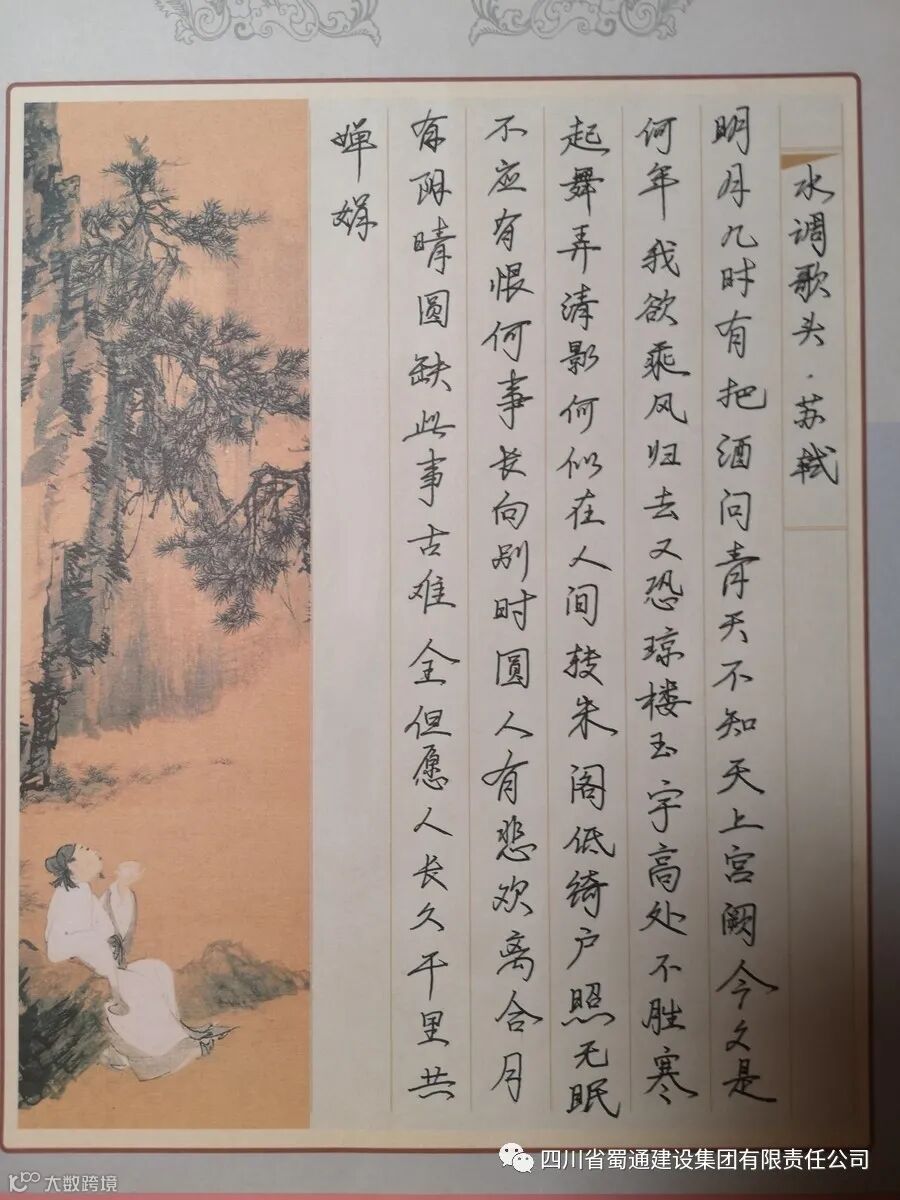 水调歌头·苏轼
明月几时有把酒问青天不知天上宫阙今夕是
何年 我欲乘风归去又恐琼楼玉宇高处不胜寒
起舞弄清影何似在人间转朱阁低绮户照无眠
不应有恨何事长向别时圆人有悲欢离合月
有阴晴圆缺此事古难全但愿人长久千里共
婵娟
四川省蜀通建设集团有限责任公司
大数跨境